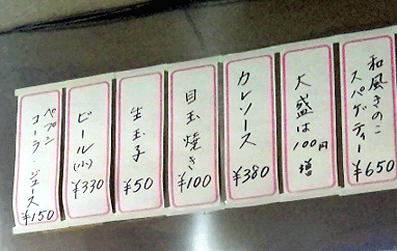 和風きのこ
スパゲティー
¥650
大盛は100円
増
カレソース
¥380
目玉焼き
¥100
生玉子
¥50
ビール(小)
¥330
ペプシ
コーラ・ジュース
¥150